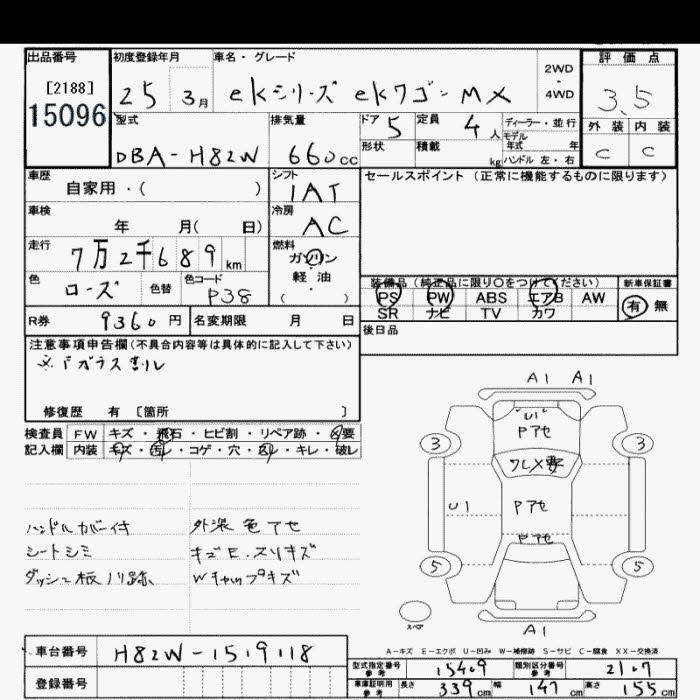 出品番号 初度登録年月 車名・グレード 評価点
[2188] 25 3月 eKシリーズ eKワゴン MX 2WD・4WD 3.5
15096 型式 排気量 ドア 5 定員 4人 ディーラー・並行 外装 内装
DBA-H82W 660cc 形状 積載 kg モデル年式 年 ハンドル 左・右 C C
車歴 シフト セールスポイント (正常に機能するものに限ります)
自家用・( ) IAT
車検 冷房
年 月( 日) AC
走行 燃料
7万2千689km ガソリン・軽油
色 ローズ 色替 色コード P38 ( )
装備品 (純正品に限り○をつけてください) 新車保証書
PS PW ABS エアB AW 有 無
SR ナビ TV カワ
R券 9360円 名変期限 月 日 後日品
注意事項申告欄(不具合内容等は具体的に記入して下さい)
※Fガラスキリレ
修復歴 有 [箇所 ]
検査員 FW キズ・飛石・ヒビ割・リペア跡・ 要
記入欄 内装 キズ・汚レ・コゲ・穴・ ・キレ・破レ
A1 A1
U1
Pアセ
3 3
ワレX要
U1 Pアセ
Pアセ
5 5
スペア
A1
ハンドルカバー付 外装色アセ
シートシミ キズE.スリキズ
ダッシュ板ノリ跡 Wキャップキズ
A-キズ E-エクボ U-凹み W-補修跡 S-サビ C-腐食 XX-交換済
車台番号 H82W-1519118
型式指定番号 参考 15409 類別区分番号 参考 2107
登録番号
車庫証明用 参考 長さ 339cm 幅 147cm 高さ 155cm